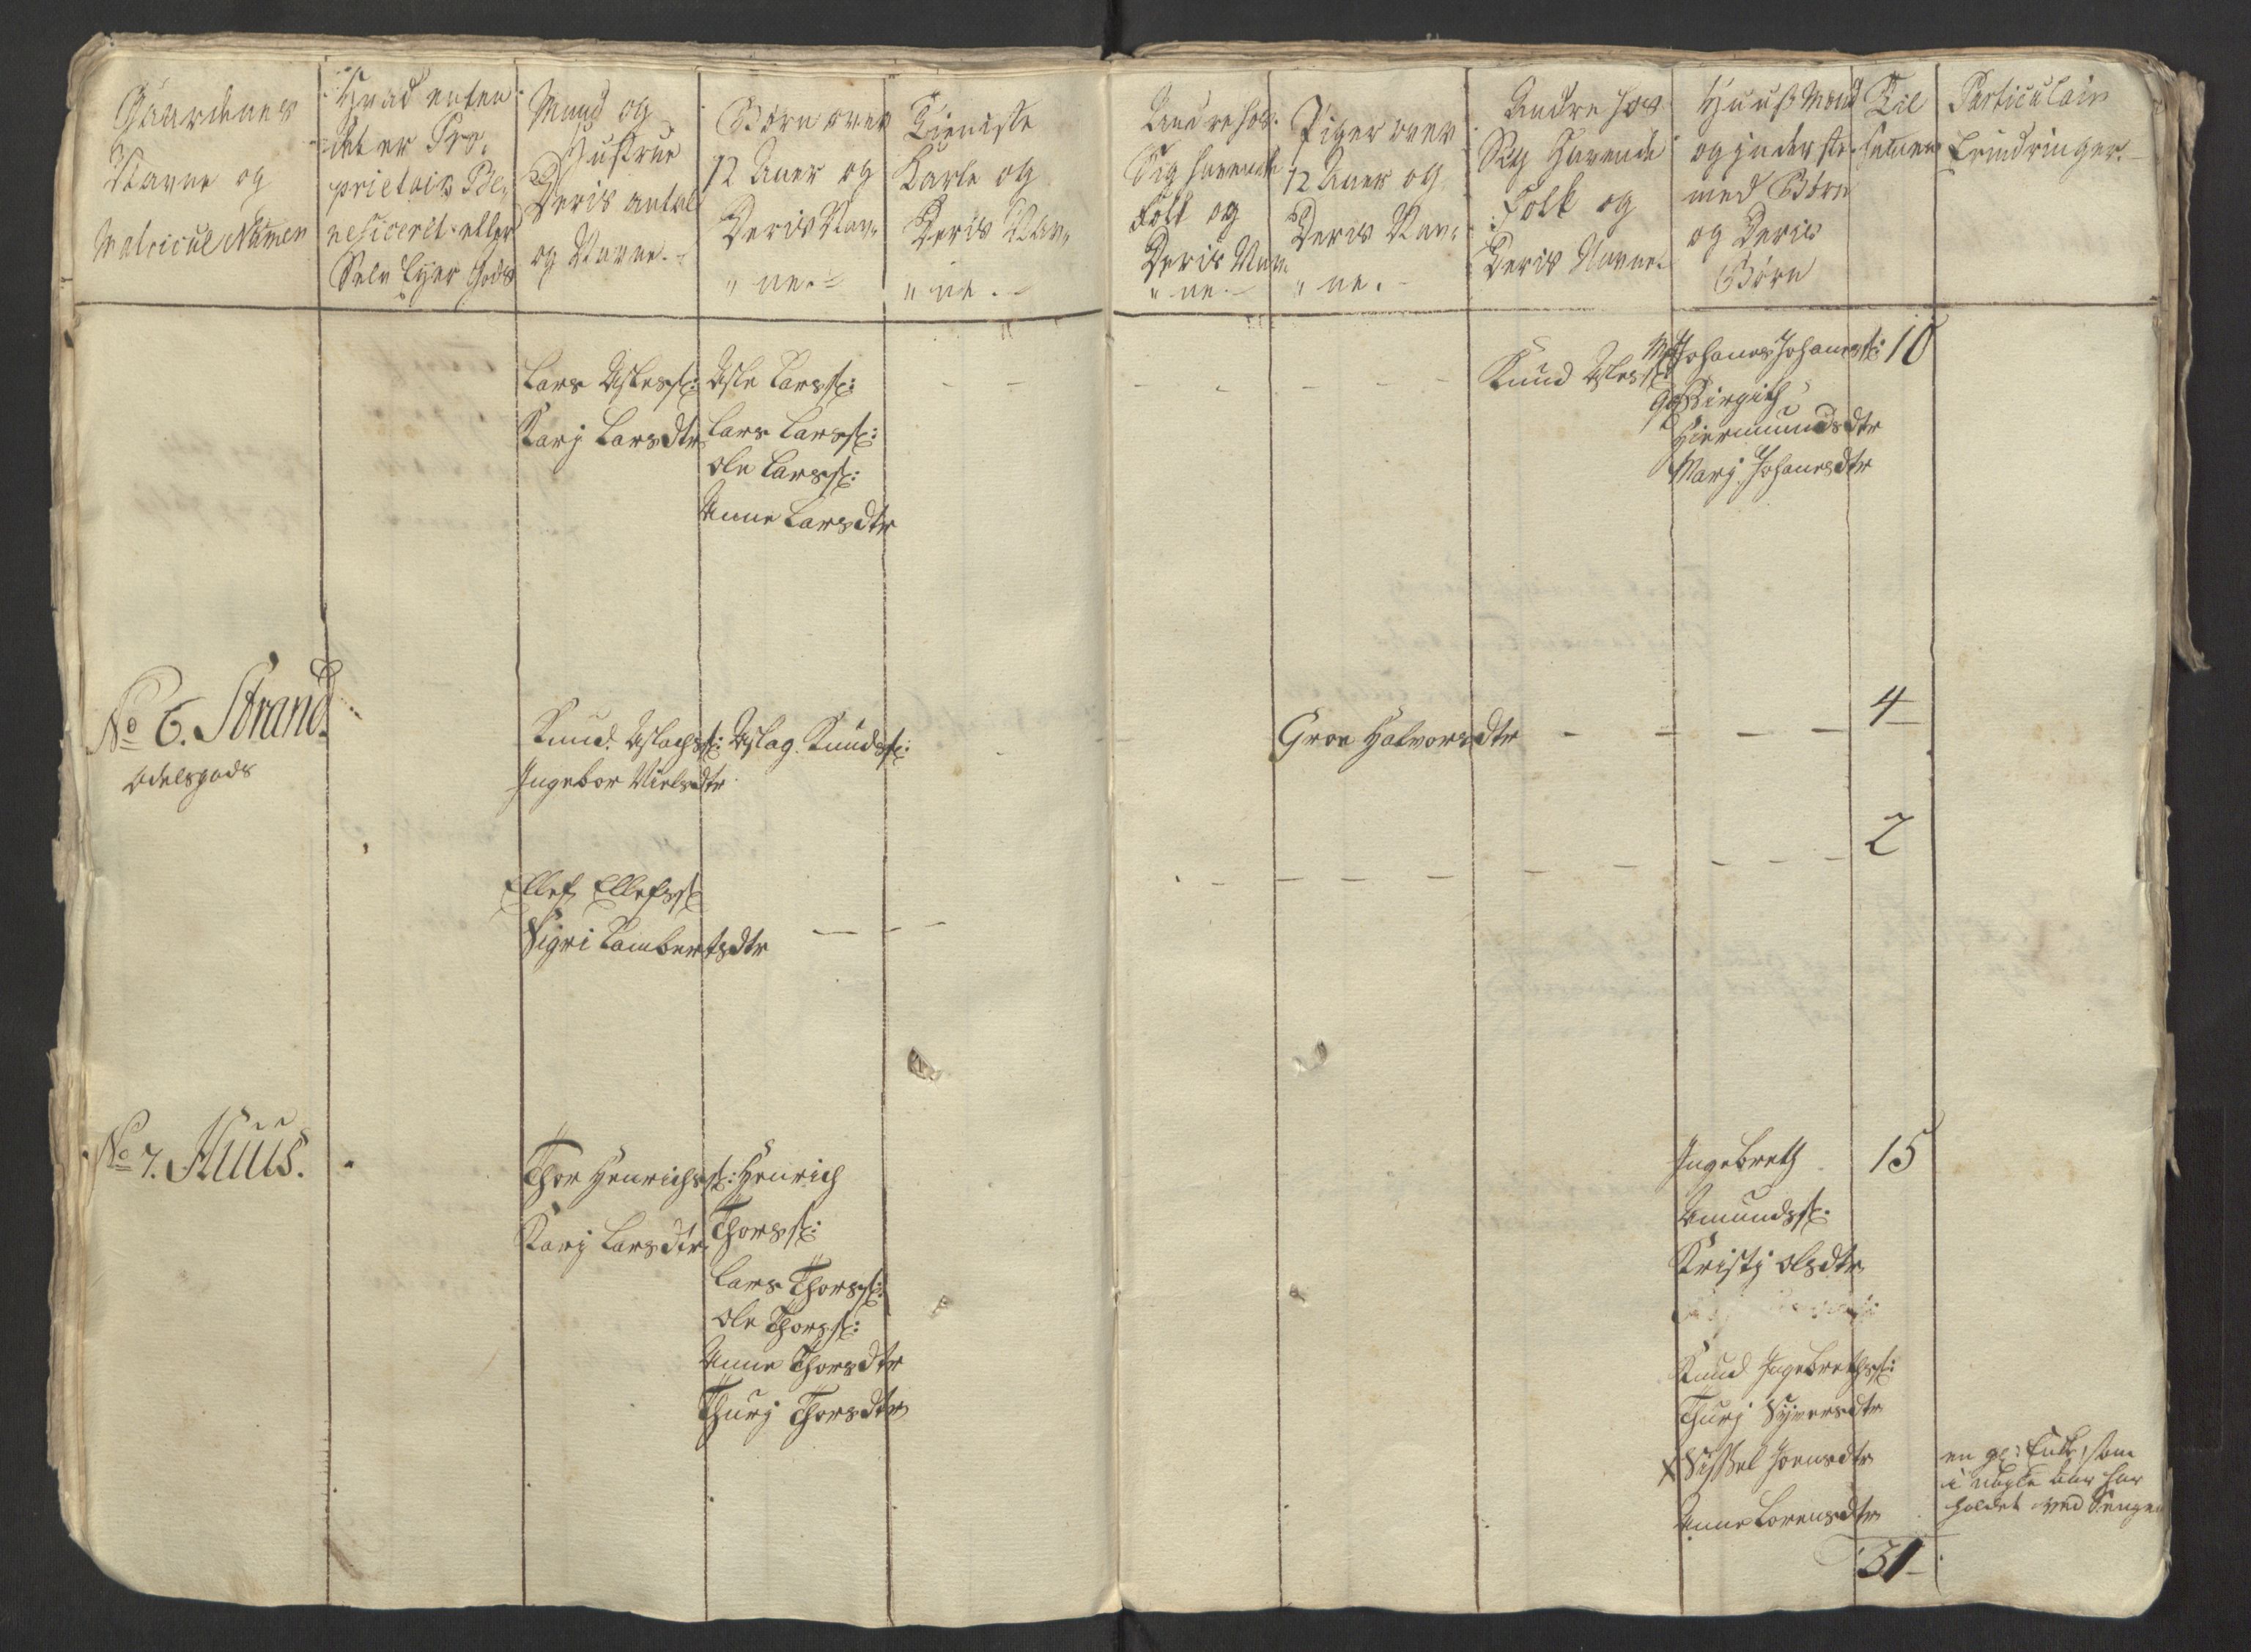 Gaardenes
Navne og
Matricul Numen
Hvad enten
det er Pro-
prietair Be-
neficeret eller
Selv Eyer Gods
Mand og
Hustrue
Deris antal
og Navne.
Børn over
12 Aaer og
Deris Nav-
" ne.
Tieniste
Karle og
Deris Nav-
" ne.
Andre hos
Sig havende
Folk og
Deris Nav-
" ne.
Piger over
12 Aaer og
Deris Nav-
" ne.
Andre hos
Sig Havende
Folk og
Deris Navne
Huus Mænd
og inderste
med Børn
og Deris
Børn
Til
samen
Particulair
Erindringer.
Lars Aslessn:
Karj Larsdtr
Asle Larssn:
Lars Larssn:
Ole Larssn:
Anne Larsdtr
Knud Aslessn:
Johanes Johanessn:
Birgith
Hiermundsdtr
Marj Johanesdtr
10
No 6. Strand.
Odelsgods
Knud Aslachssn:
Ingebor Nielsdtr
Aslag Knudssn:
Groe Halvorsdtr
4
Ellef Ellefssn
Sigri Lambertsdtr
2
No 7. Huus.
Thor Henrichssn:
Karj Larsdtr
Henrich
Thorssn:
Lars Thorssn:
Ole Thorssn:
Anne Thorsdtr
Thurj Thorsdtr
Ingebreth
Amundssn:
Kristj Olsdtr
Knud Ingebrethssn:
Thurj Syversdtr
x Sissel Joensdtr
Anne Lorensdtr
15
en gl: Enke, som
i nogle aar har
holdet ved Sengen
31